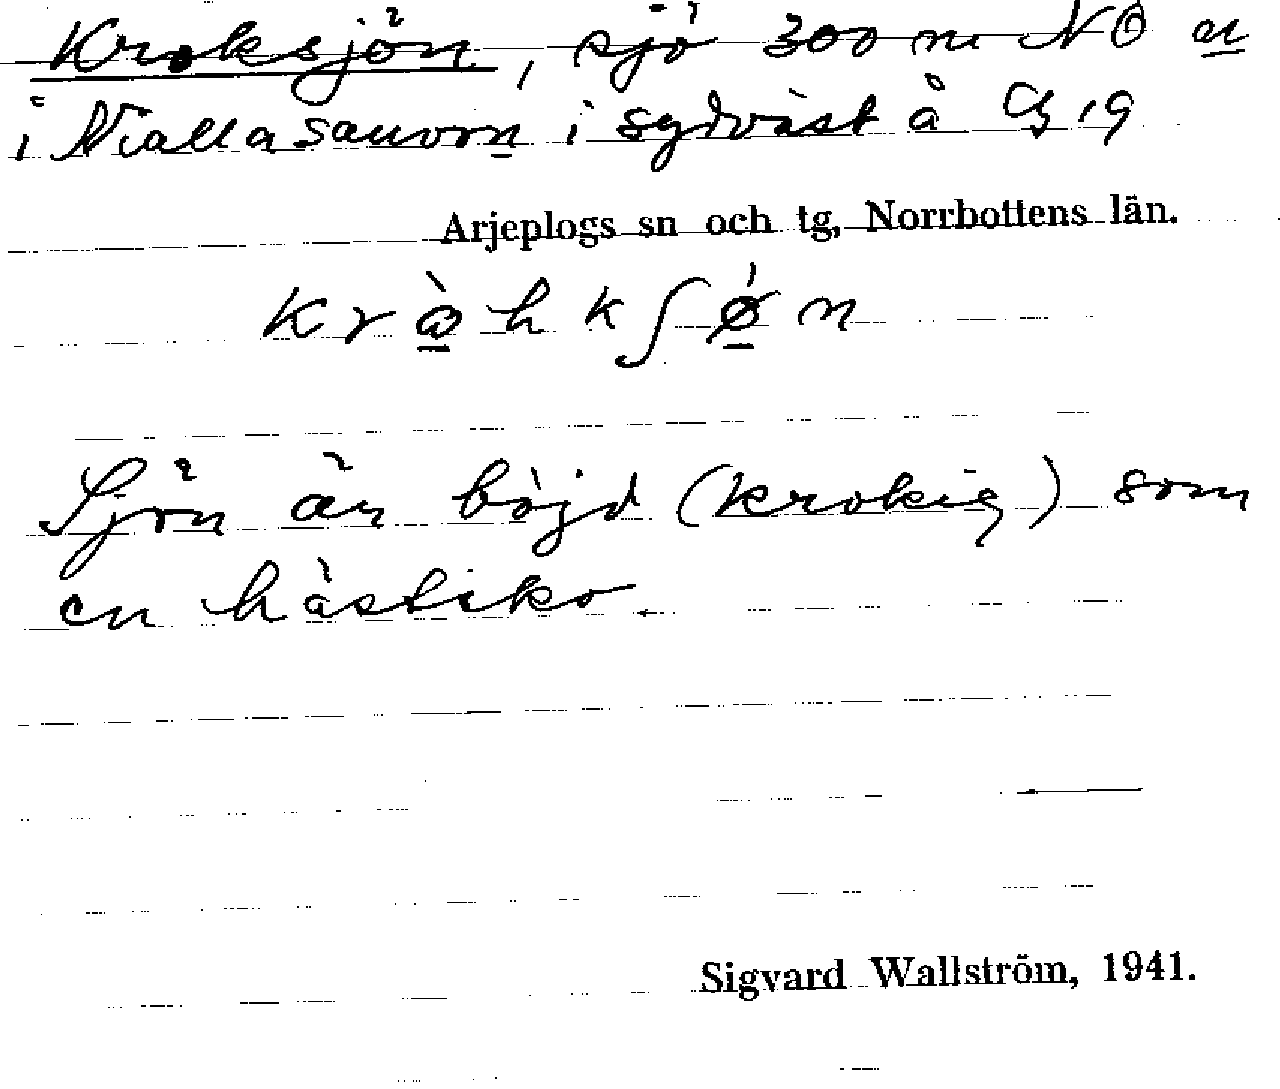 Kroksjön, sjö 300 m NO n
i Niallasauvon i sydväst å G 19
Arjeplogs sn och tg, Norrbottens län.
krå̀hkʃǿn
Sjön är böjd (krokig) som
en hästsko.
Sigvard Wallström, 1941.